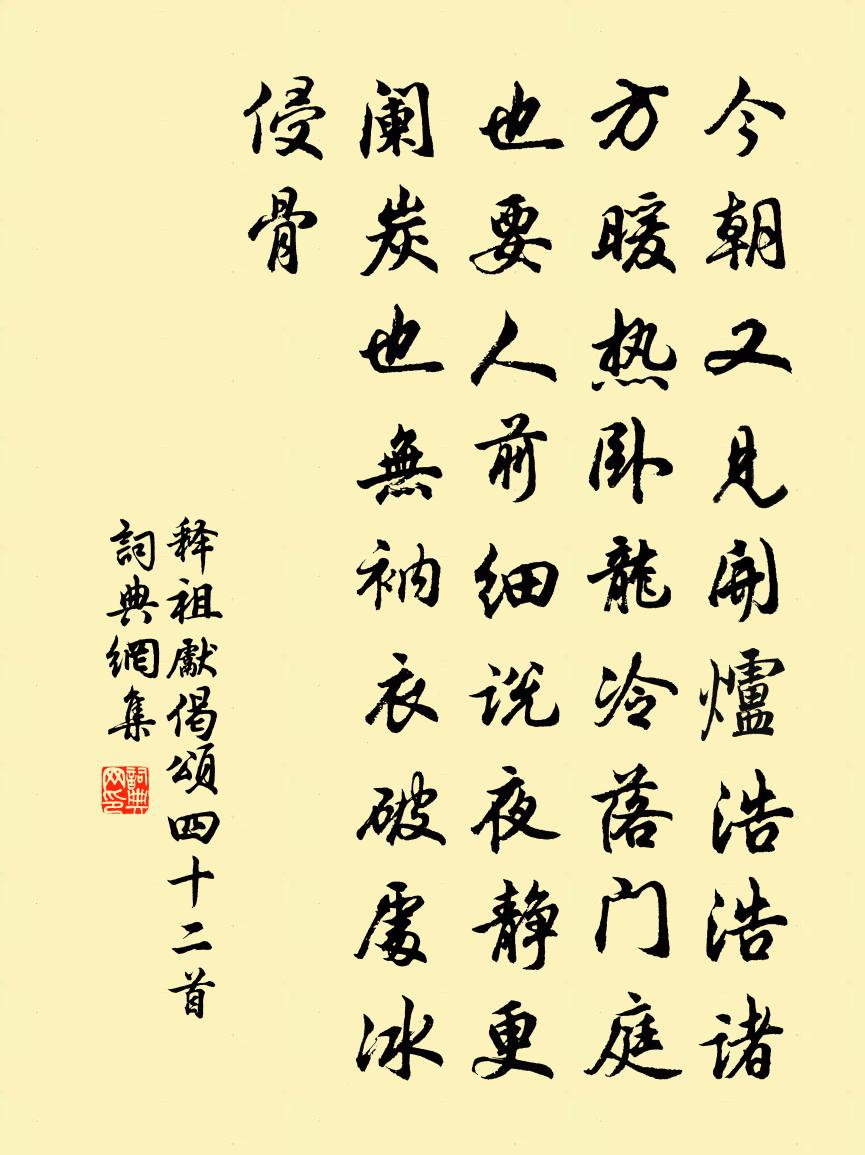 今朝又见開爐浩浩诸
方暖热卧龍冷落门庭
也要人前细说夜静更
阑炭也無衲衣破處冰
侵骨
释祖獻偈頌四十二首
詞典網集
詞典
网印